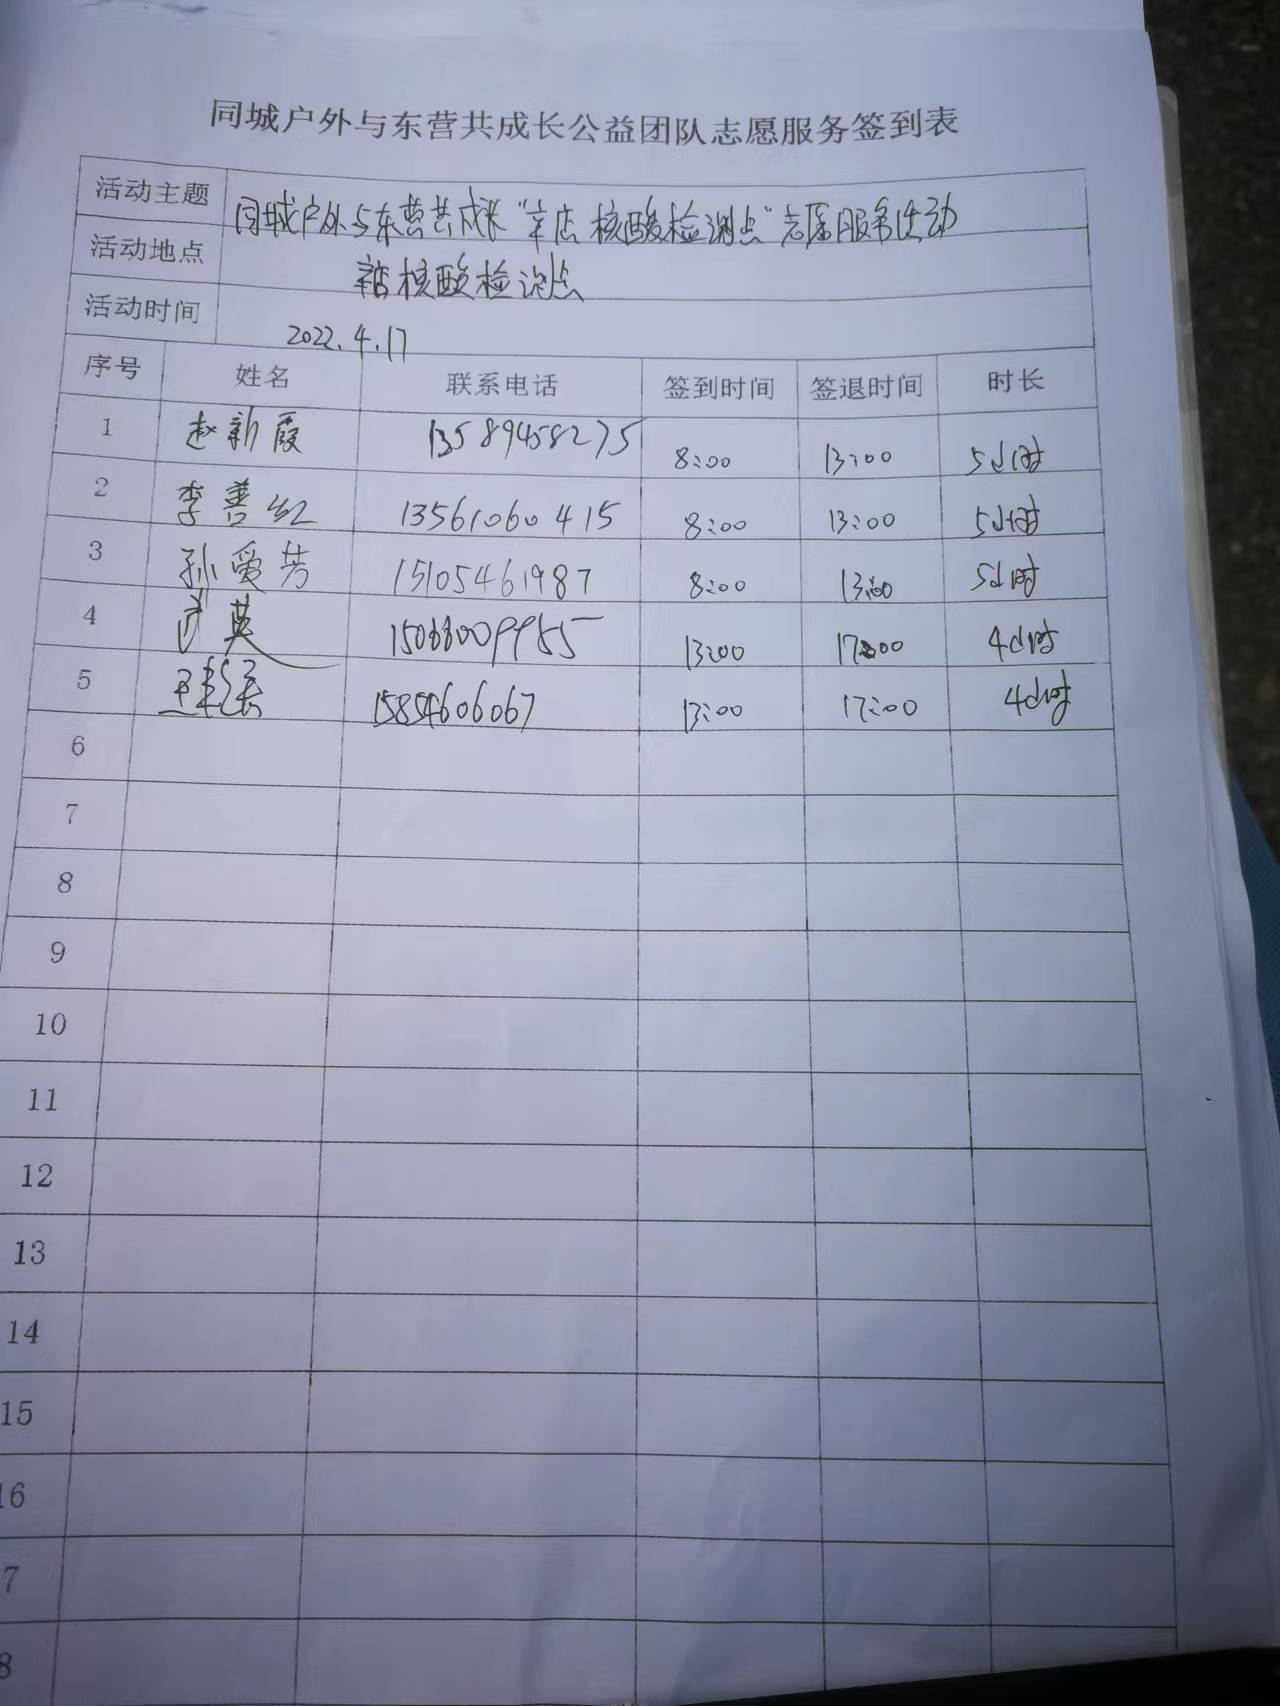 同城户外与东营共成长公益团队志愿服务签到表
活动主题 同城户外与东营共成长“辛店核酸检测点”志愿服务活动
活动地点 辛店核酸检测点
活动时间 2022.4.17
序号 姓名 联系电话 签到时间 签退时间 时长
1 赵新霞 13589458275 8:00 13:00 5小时
2 李善红 13561060415 8:00 13:00 5小时
3 孙爱芳 15105461987 8:00 13:00 5小时
4 英 13:00 17:00 4小时
5 15854606067 13:00 17:00 4小时
6
7
8
9
10
11
12
13
14
15
16
7
8